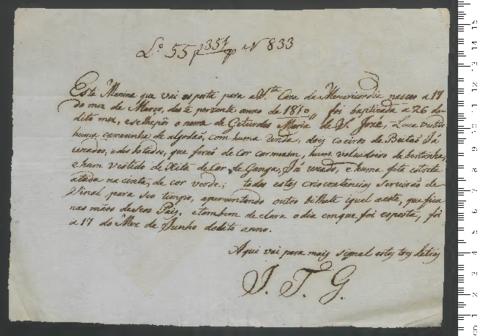 L.º 55 f 351 N 833
Esta Menina que vai esposta para a S.ta Caza da Mizericordia nasceo a 19
do mez de Março, deste prezente anno de 1810, foi baptizada a 26 do
dito mez, e selhe pos o nome de Getrudes Maria de S. José, Leva vestido
huma camizinha de algodaõ, com huma renda, dois coeiros de Baetaõ Já
uzados, e desbotados, que foraõ de Cor, hum volvedoiro de
e hum vestido de Xita de Cor de Ganga, Já uzado, e huma fita
atada na cinta, de cor verde; todas estas circonstancias Serviraõ de
Sinal, para seo tempo, aprezentando outro Bilhete igual a este, que fica
nas maõs de seos Pais, e tambem declara o dia em que foi exposta, foi
a 17 do Mez de Junho do dito anno.
Aqui vai para mais signal estas tres Letras
J. T. G.